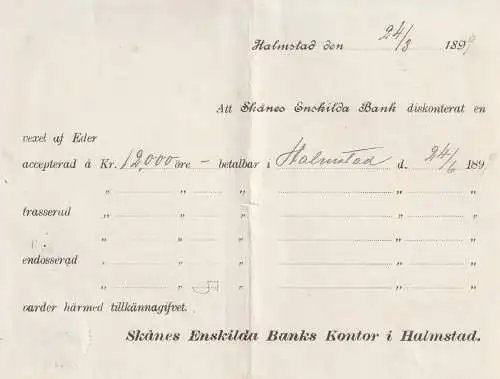 Halmstad den 24/3 1899
Att Skånes Enskilda Bank diskonterat en
vexel af Eder
accepterad å Kr. 12,000 öre – betalbar i Halmstad d. 24/6 189
„ „ „ „ „
trasserad „ „ „ „ „
„ „ „ „ „
endosserad „ „ „ „ „
„ „ „ „ „
varder härmed tillkännagifvet.
Skånes Enskilda Banks Kontor i Halmstad.